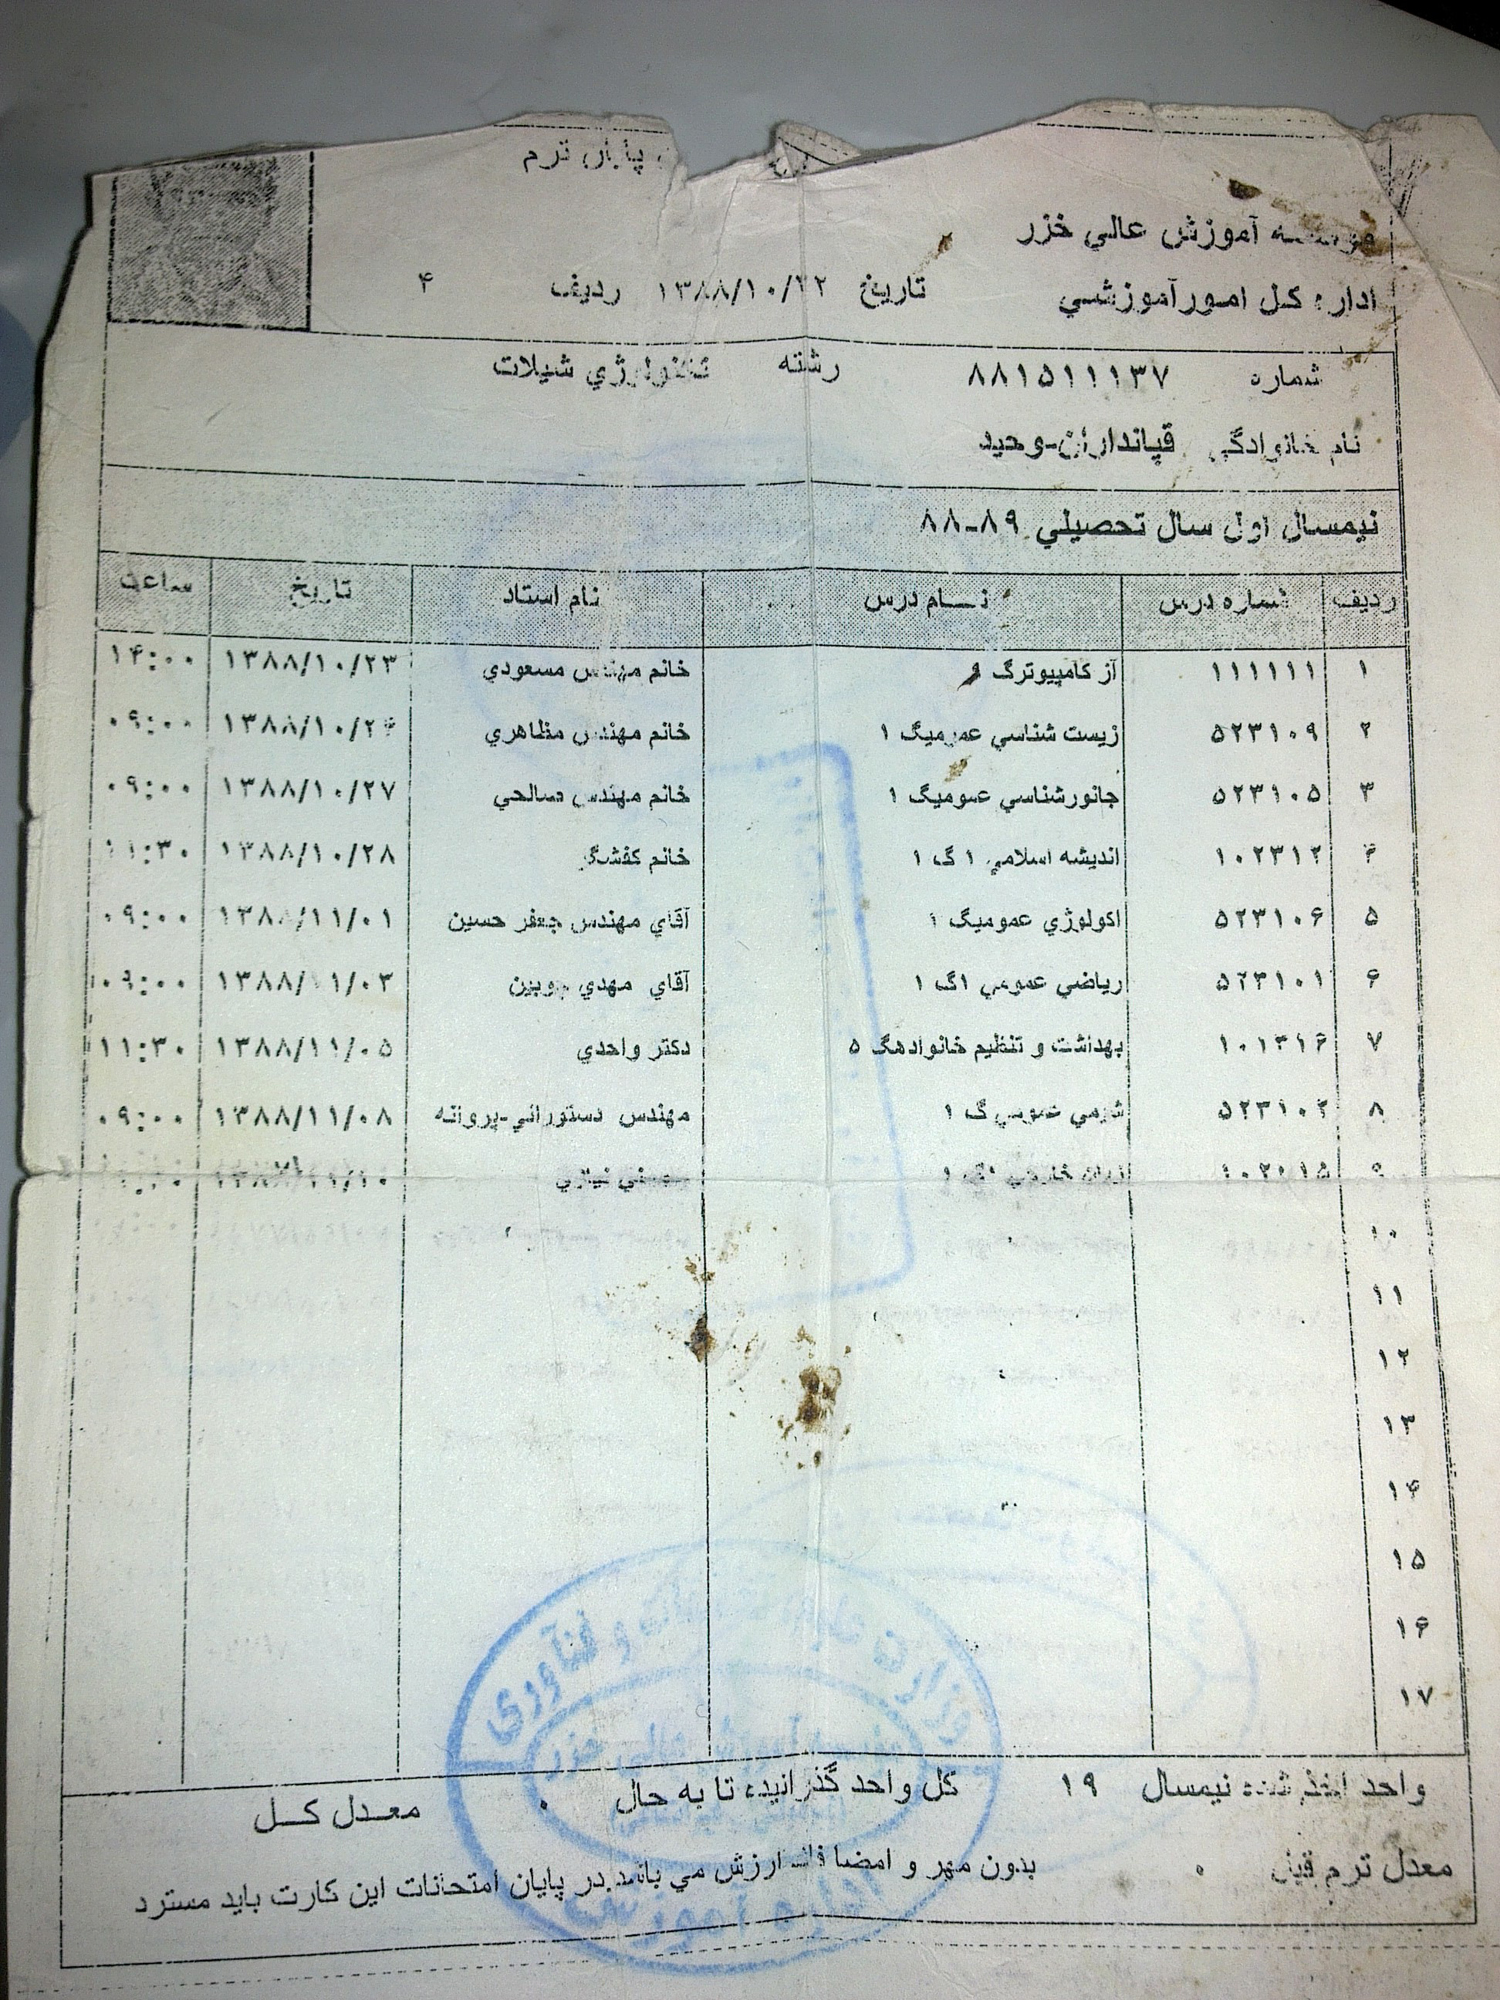 پایان ترم
موسسه آموزش عالي خزر
اداره کل امورآموزشي تاريخ ۱۳۸۸/۱۰/۲۲ رديف ۴
شماره ۸۸۱۵۱۱۱۳۷ رشته تکنولوژي شيلات
نام خانوادگي قپانداران-وحيد
نيمسال اول سال تحصيلي ۸۹-۸۸
رديف شماره درس نــام درس نام استاد تاريخ ساعت
۱ ۱۱۱۱۱۱ آز کامپيوترگ خانم مهندس مسعودي ۱۳۸۸/۱۰/۲۳ ۱۴:۰۰
۲ ۵۲۳۱۰۹ زيست شناسي عموميگ ۱ خانم مهندس مظاهري ۱۳۸۸/۱۰/۲۴ ۰۹:۰۰
۳ ۵۲۳۱۰۵ جانورشناسي عموميگ ۱ خانم مهندس صالحي ۱۳۸۸/۱۰/۲۷ ۰۹:۰۰
۴ ۱۰۲۳۱۲ انديشه اسلامي ۱ گ ۱ خانم کفشگر ۱۳۸۸/۱۰/۲۸ ۱۱:۳۰
۵ ۵۲۳۱۰۶ اکولوژي عموميگ ۱ آقاي مهندس جعفر حسين ۱۳۸۸/۱۱/۰۱ ۰۹:۰۰
۶ ۵۲۳۱۰۱ رياضي عمومي ۱گ ۱ آقاي مهدي چوبين ۱۳۸۸/۱۱/۰۳ ۰۹:۰۰
۷ ۱۰۱۳۱۶ بهداشت و تنظيم خانوادهگ ۵ دکتر واحدي ۱۳۸۸/۱۱/۰۵ ۱۱:۳۰
۸ ۵۲۳۱۰۲ شيمي عمومي گ ۱ مهندس دستوراني-پروانه ۱۳۸۸/۱۱/۰۸ ۰۹:۰۰
۹ زبان خارجي نيازي ۱۳۸۸/۱۱/۱۰
۱۰
۱۱
۱۲
۱۳
۱۴
۱۵
۱۶
۱۷
وزارت علوم تحقیقات و فنآوری
موسسه آموزش عالی خزر
اداره آموزش
واحد اخذ شده نيمسال ۱۹ کل واحد گذرانيده تا به حال ۰ معدل کــل
معدل ترم قبل ۰ بدون مهر و امضا فاقد ارزش مي باشد.در پايان امتحانات اين کارت بايد مسترد